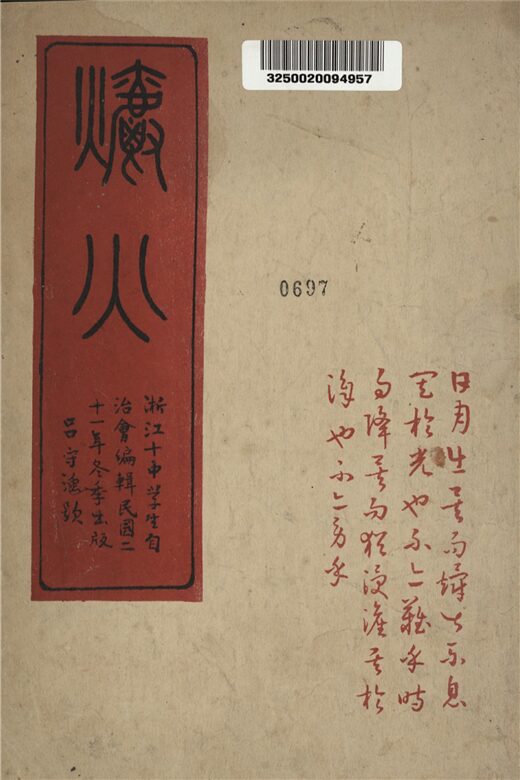 爝火
浙江十中学生自
治會編輯民國二
十一年冬季出版
呂守漁題
3250020094957
0697
日月出矣而爝火不息
其於光也不亦難乎時
雨降矣而猶浸灌其於
澤也不亦勞乎